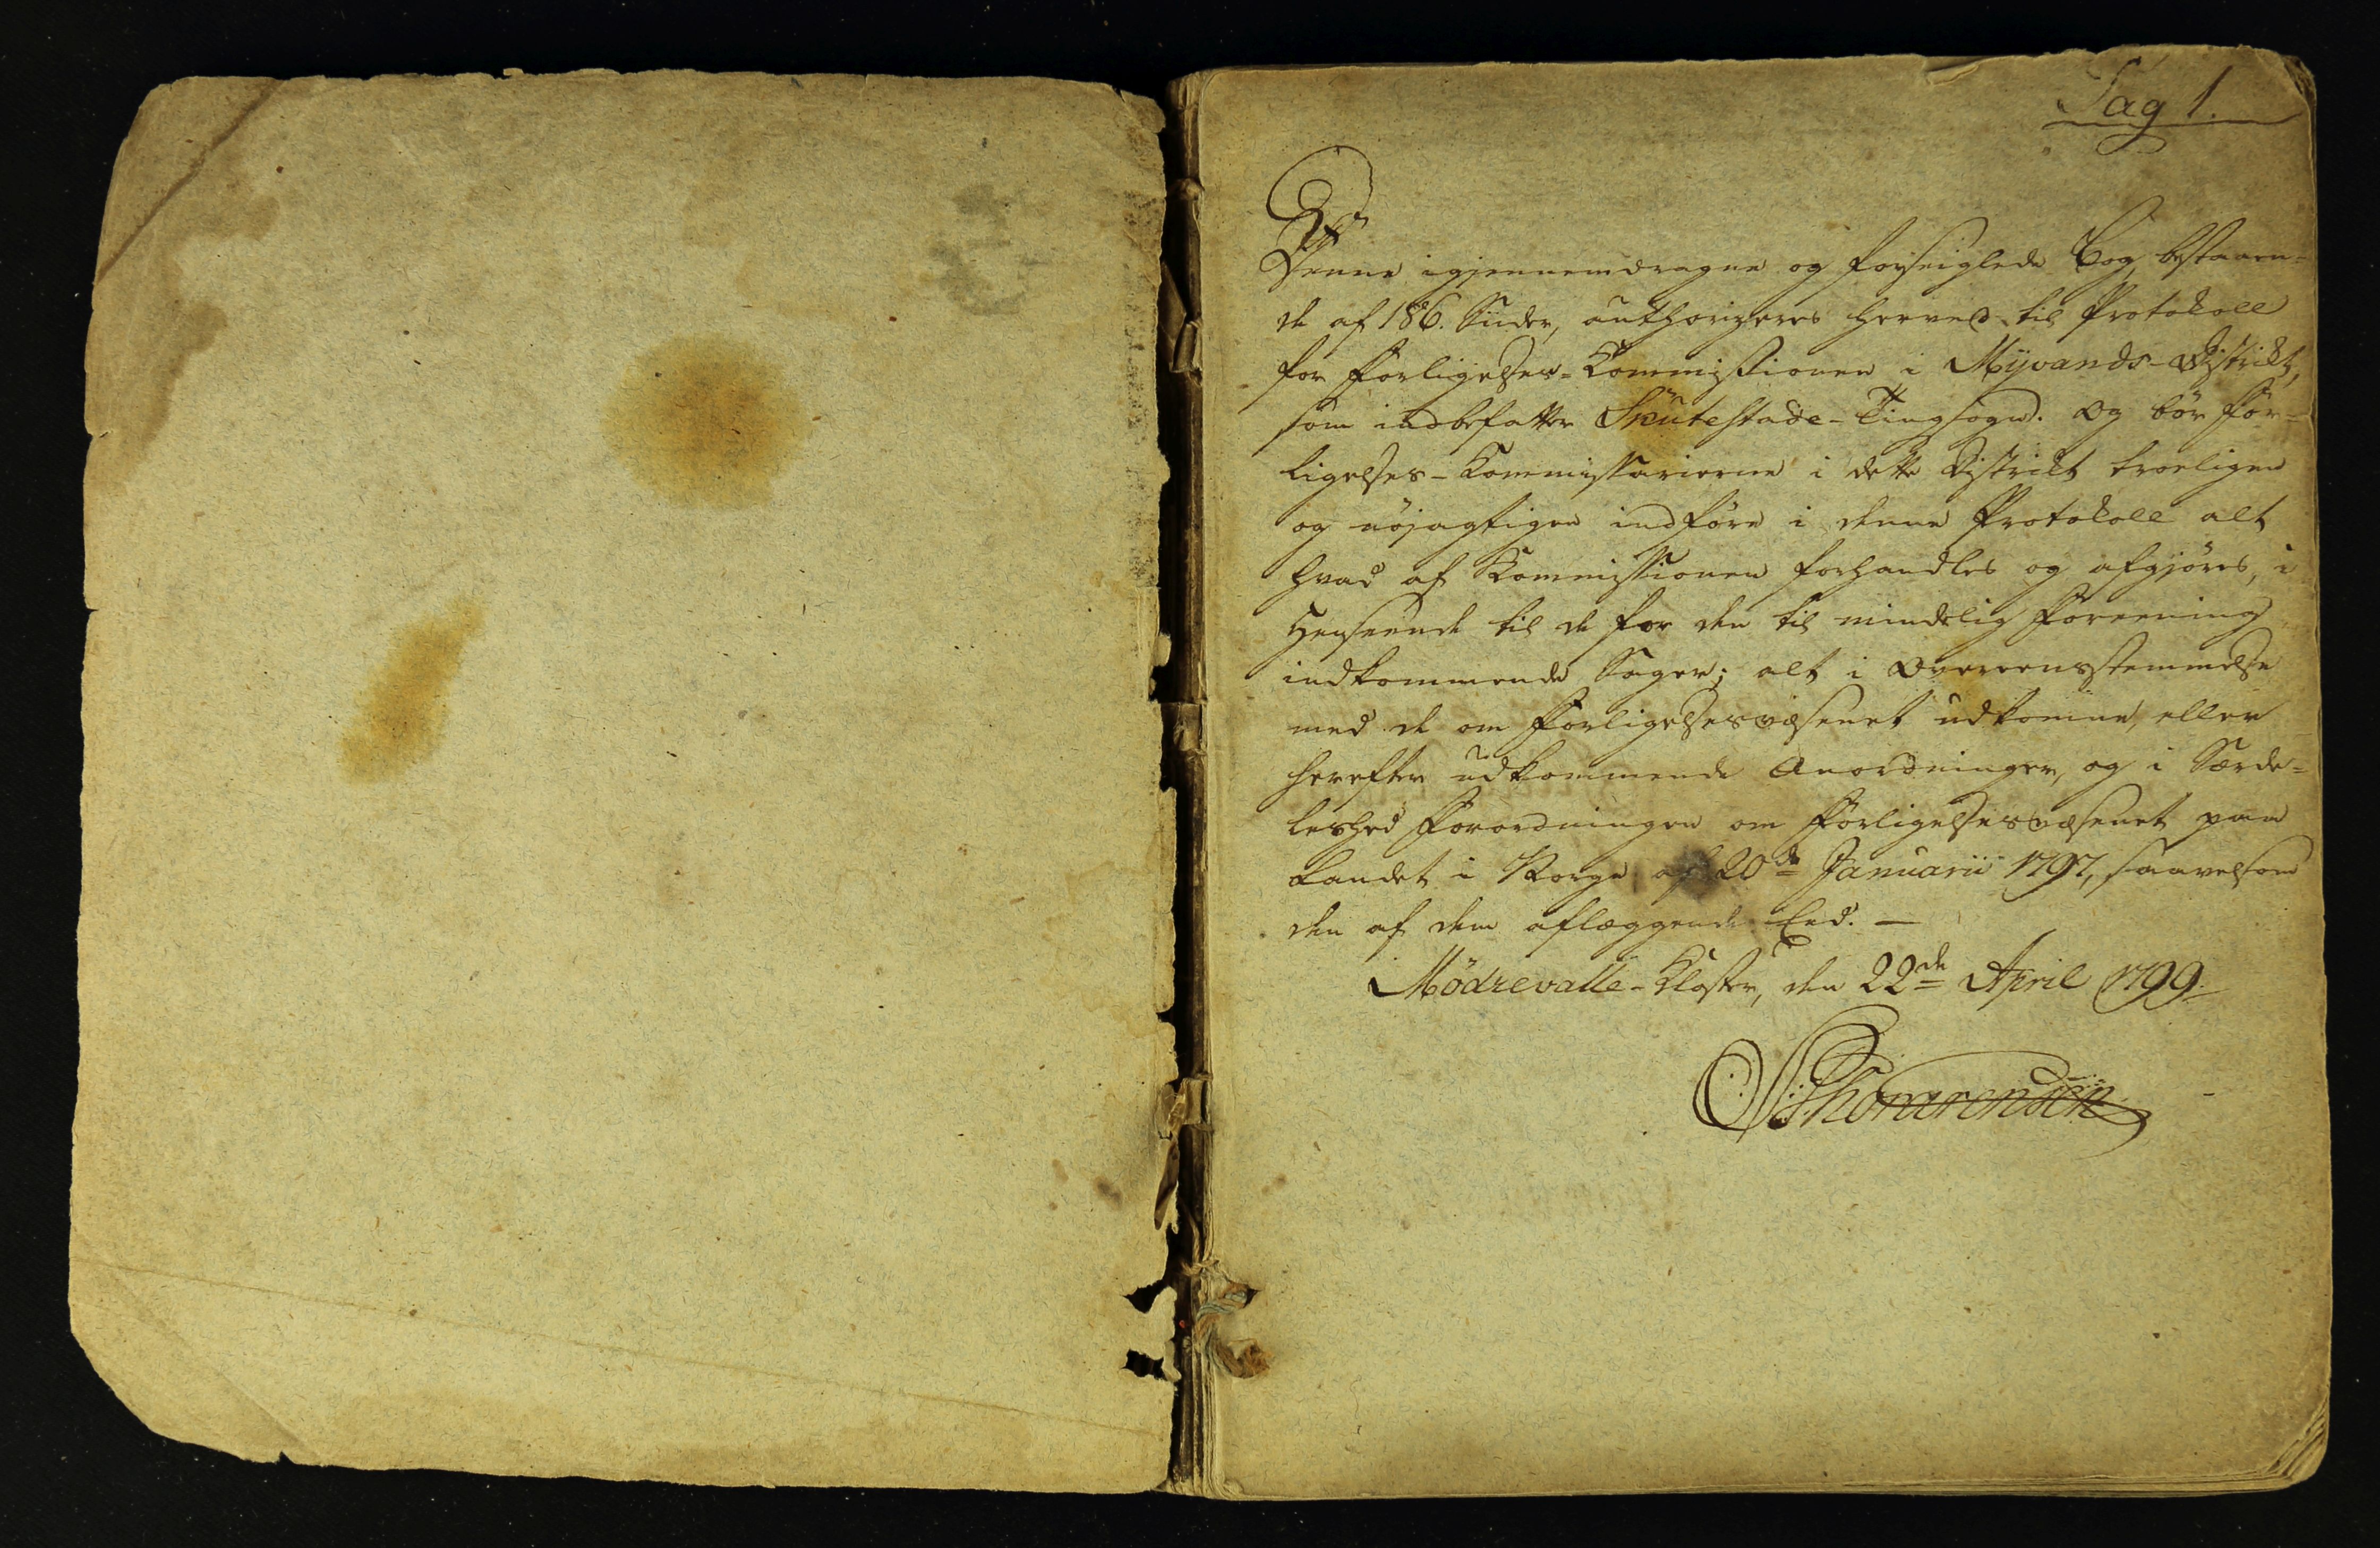 Pag 1.
Denne igjennemdragne og forseiglede Bog, bestaaen=
de af 186. Siider, authoriseres herved til Protokoll
for Forligelses=Kommissionen i Mÿvands-District,
som indbefatter Skutestade-Tingsogn. Og bør For=
ligelses-Kommissarierne i dette District troeligen
og nöjagtigen indföre i denne Protokoll alt
hvad af Kommissionen forhandles og afgjöres, i
Henseende til de for den til mindelig Foreening
indkommende Sager; alt i Overeensstemmelse
med de om Forligelsesvæsenet udkomne, eller
herefter udkommende Anordninger, og i Særde=
leshed Forordningen om Forligelsesvæsenet paa
Landet i Norge af 20de Januarii 1797, saavelsom
den af dem aflæggende Eed. —
Mödrevalle-Kloster, den 22de April 1799.
S Thorarensen